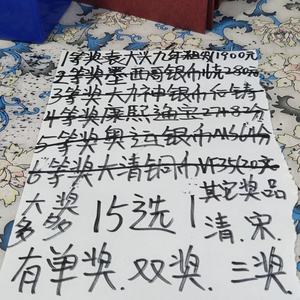 1等奖袁大头九年粗发1900元
2等奖墨西哥银币优280元
3等奖大力神银币
4等奖康熙通宝2782分
5等奖奥运银币MS6份
6等奖大清铜币VF35/20元
大奖多多
15选1
其它奖品
清.宋
有单奖.双奖.三奖